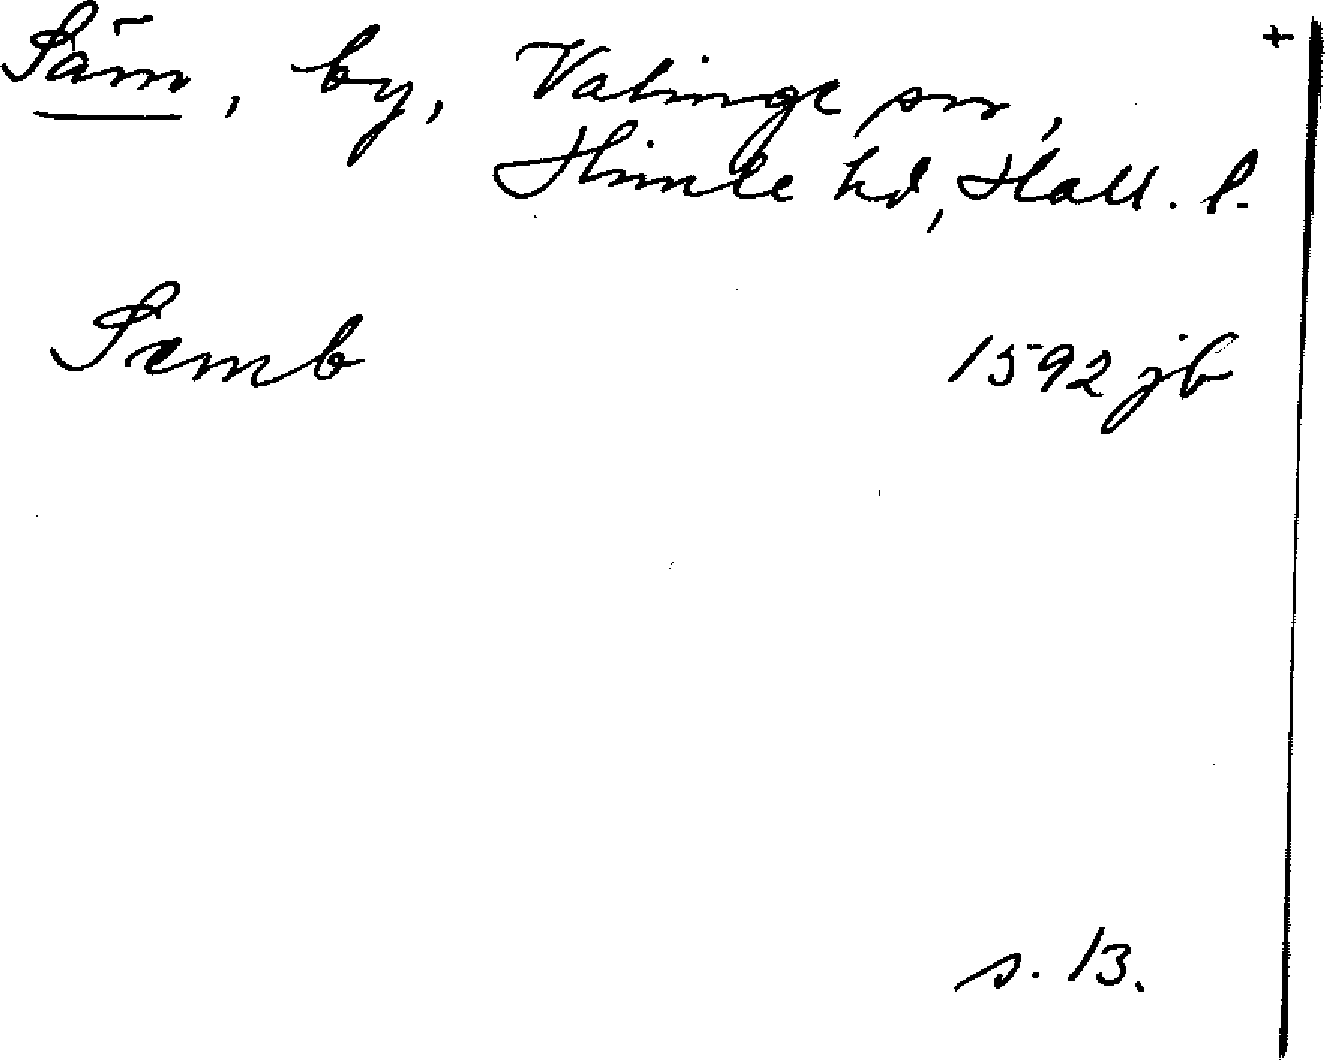 Säm, by, Valinge sn, +
Himle hd, Hall. l.
Semb 1592 jb
s. 13.